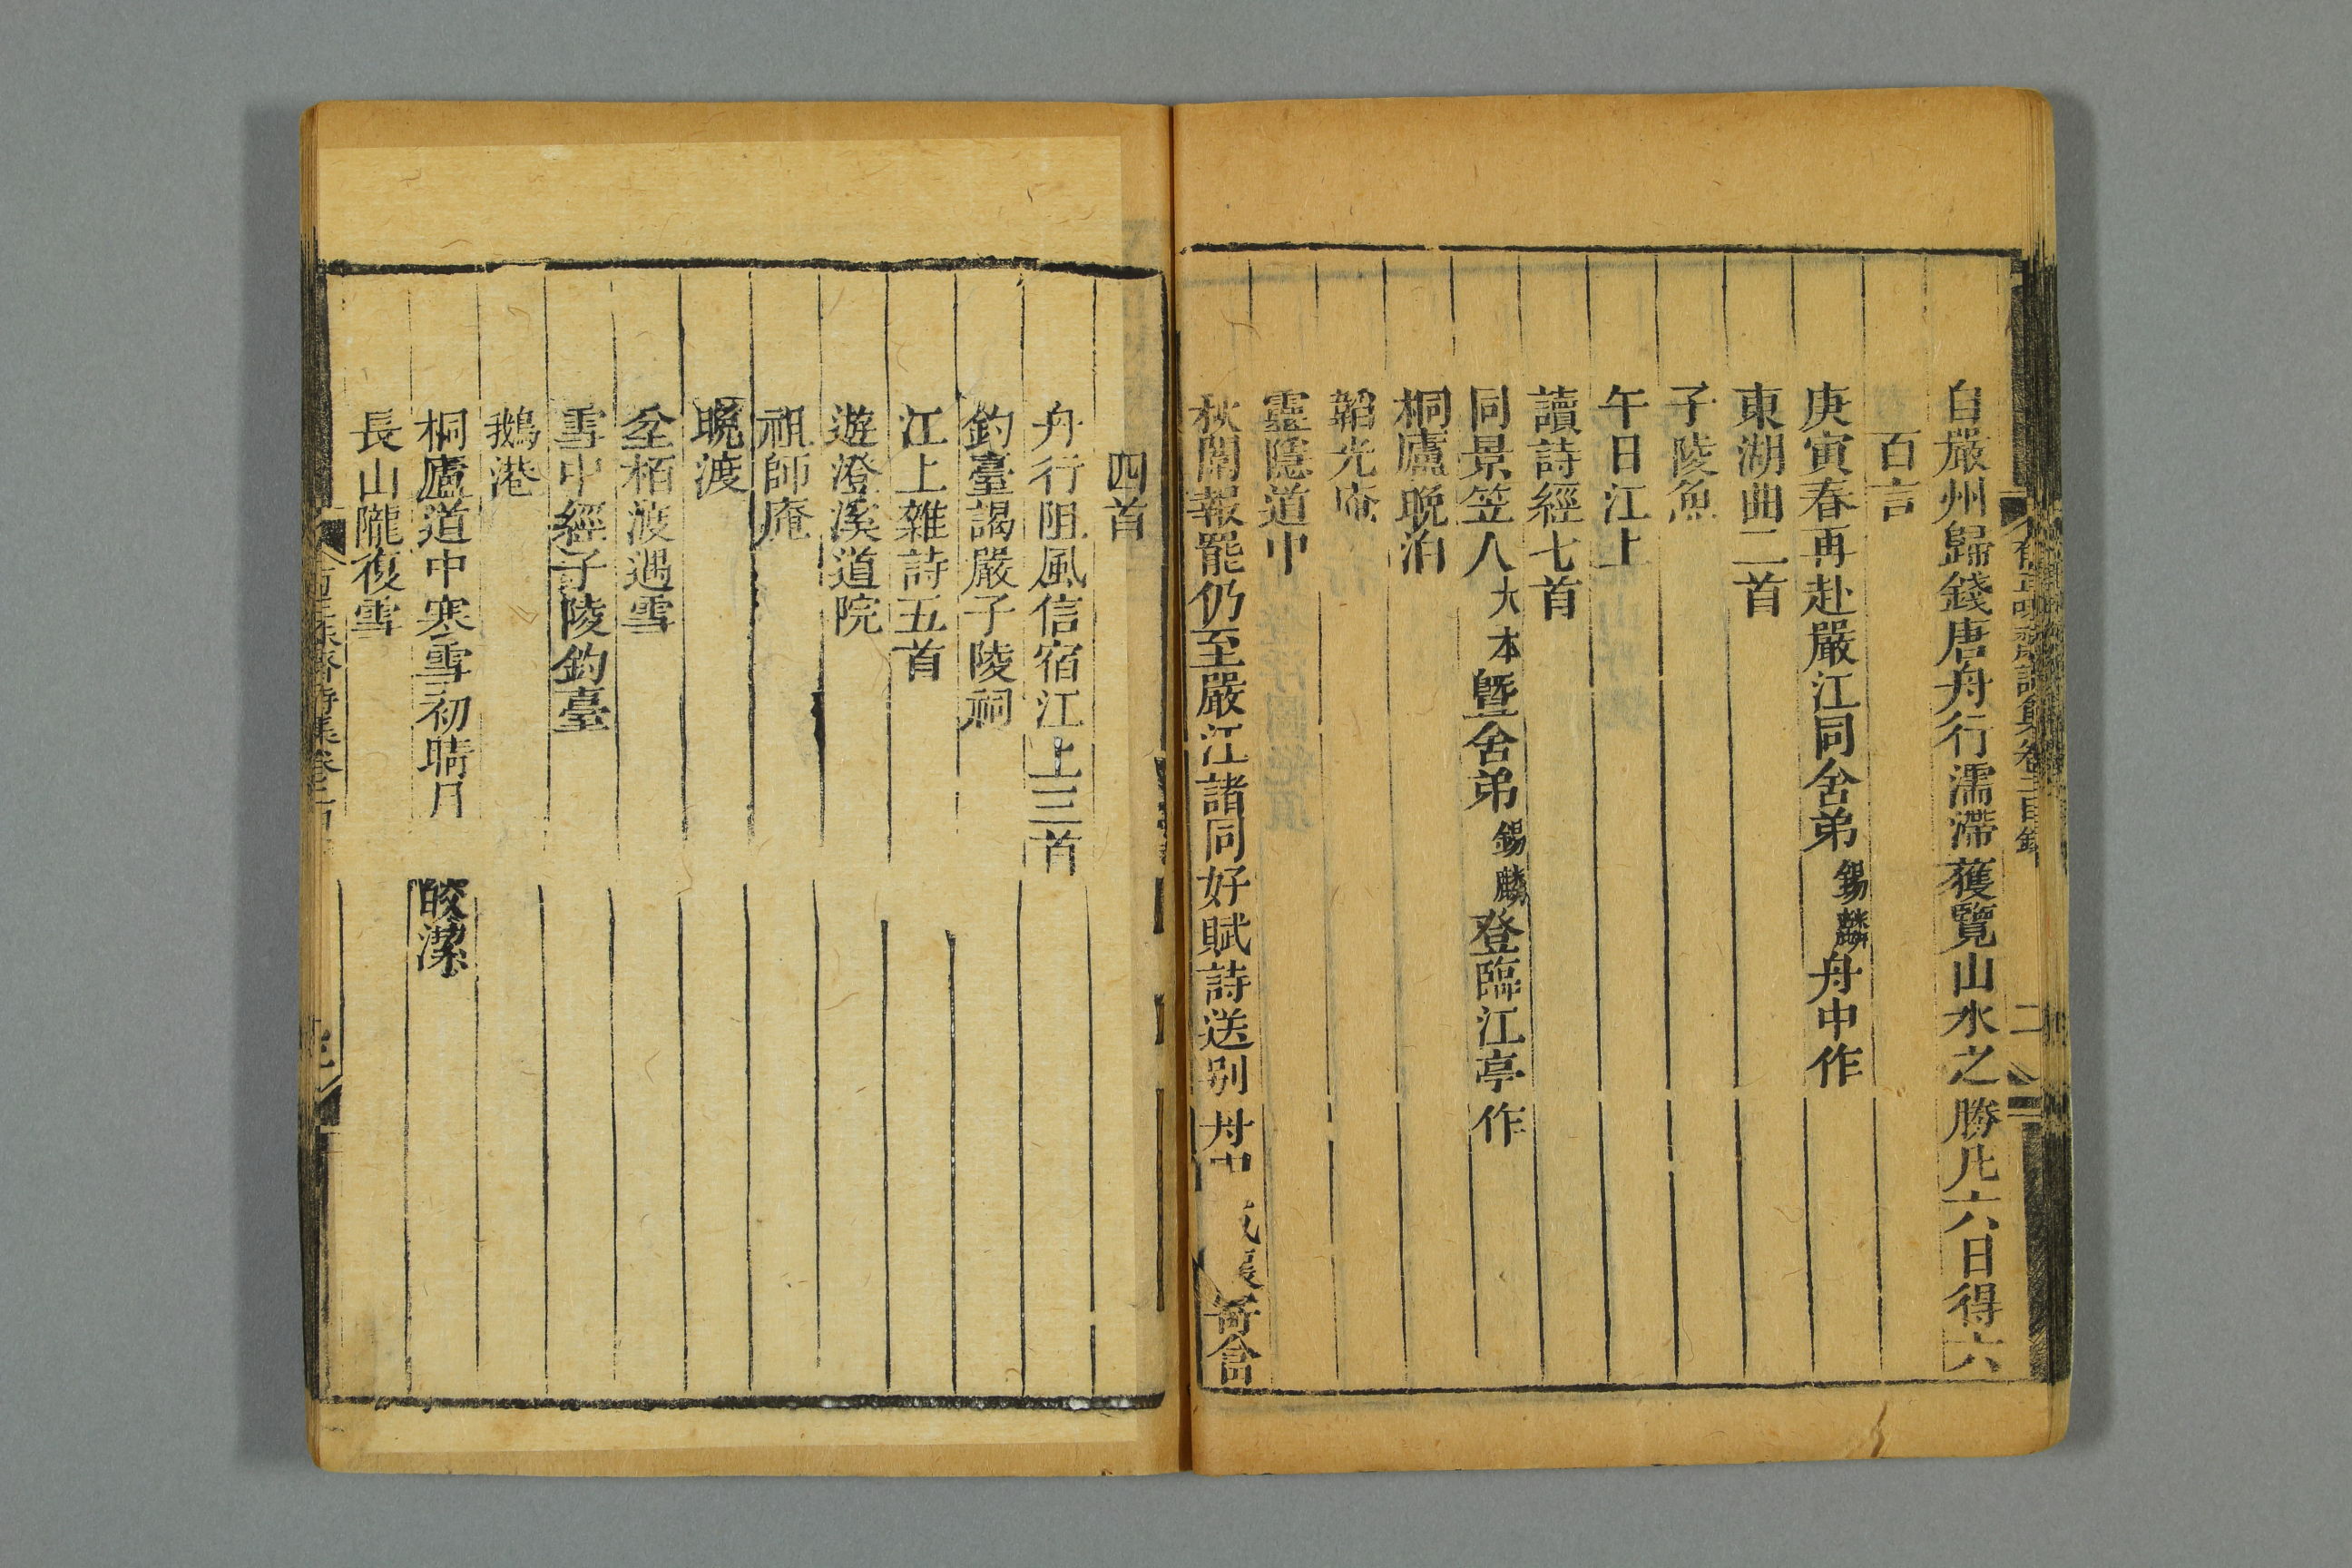 自嚴州歸錢唐舟行濡滯獲覽山水之勝凡六日得六
百言
庚寅春再赴嚴江同舍弟錫麟舟中作
東湖曲二首
子陵魚
午日江上
讀詩經七首
同景笠八大本曁舍弟錫麟登臨江亭作
桐廬晩泊
韜光庵
靈隱道中
秋闈報罷仍至嚴江諸同好賦詩送别舟中
四首
舟行阻風信宿江上三首
釣臺謁嚴子陵祠
江上雜詩五首
遊澄溪道院
祖師庵
晩渡
全栢渡遇雪
雪中經子陵釣臺
鵝港
桐廬道中寒雪初晴月皎潔
長山隴復雪
二
三